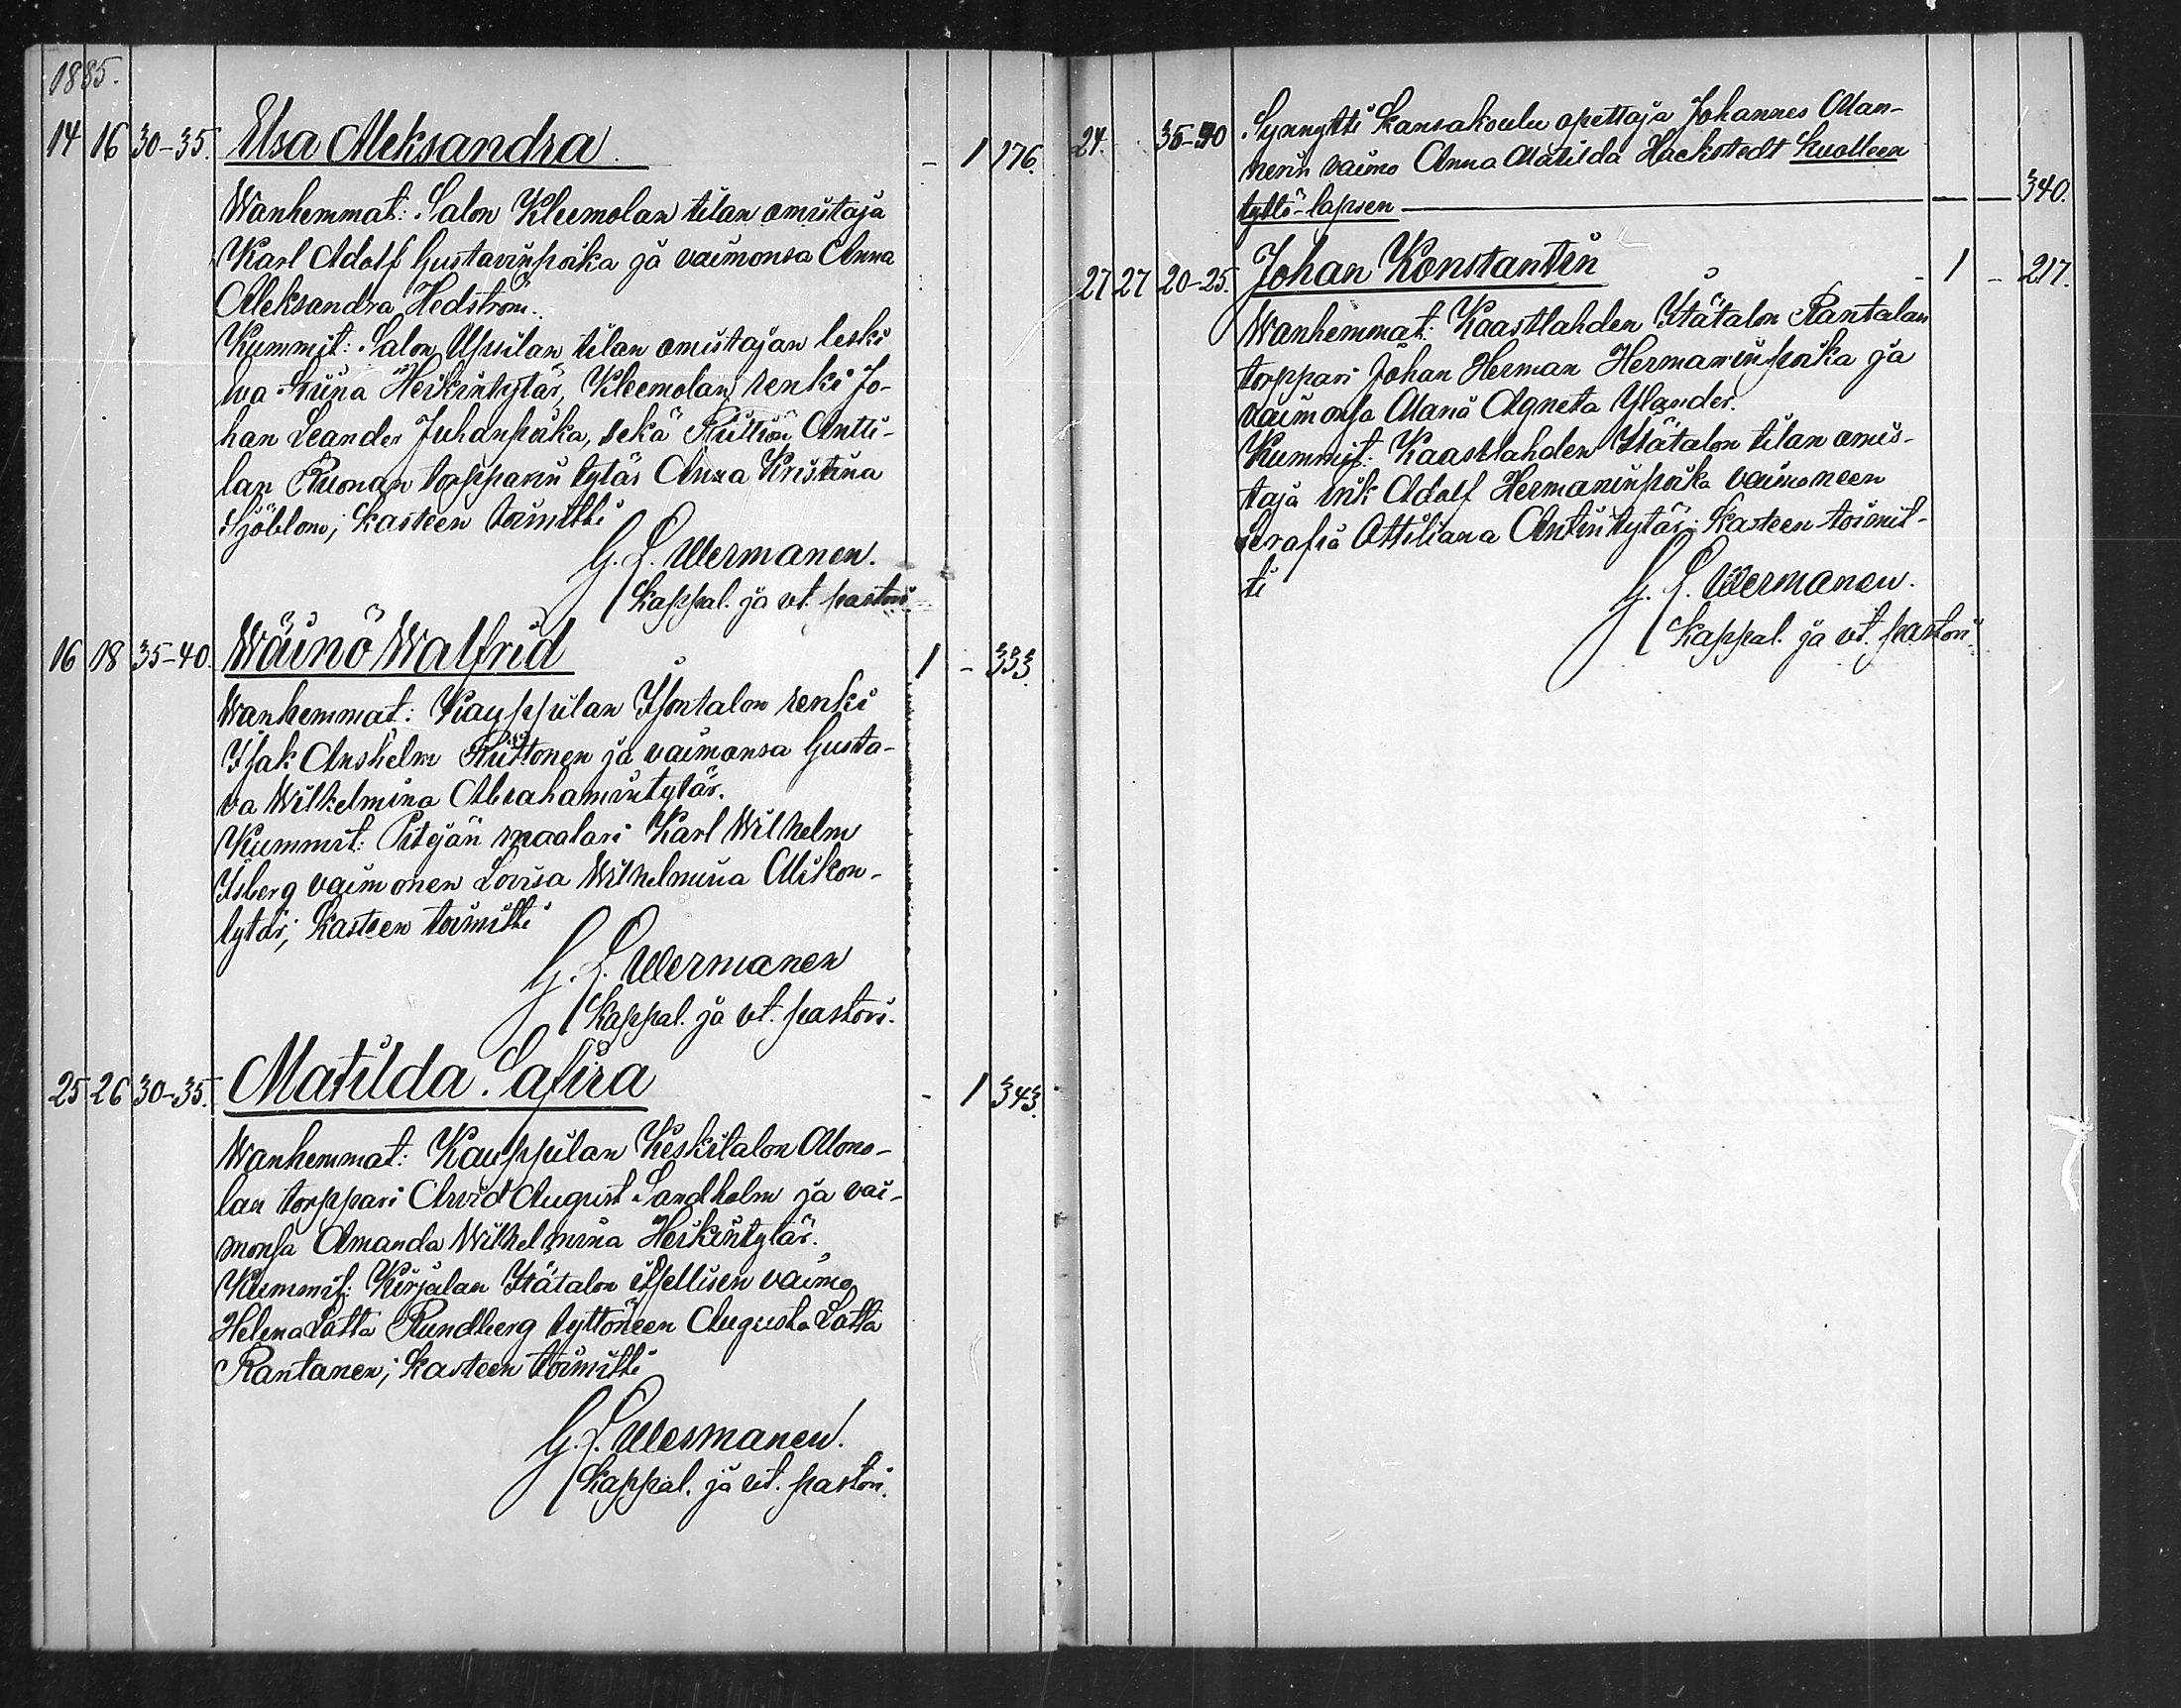 1885.
14 16 30-35. Elsa Aleksandra. - 1 176.
Wanhemmat: Salon Kleemolan tilan omistaja
Karl Adolf Gustavinpoika ja vaimonsa Anna
Aleksandra Hedström.
Kummit: Salon Upsilan tilan omistajan leski
Eva Stiina Heikintytär, Kleemolan renki Jo-
han Leander Juhanpoika, sekä Riittiön Antti-
lan Ruonan torpparin tytär Anna Kristina
Sjöblom; kasteen toimitti
G. L. Wermanen.
Kappal. ja vt. pastori
16 18 35-40. Wäinö Walfrid 1 - 333.
Wanhemmat: Kauppilan Isontalon renki
Isak Anshelm Riittonen ja vaimonsa Gusta-
va Wilhelmina Abrahamintytär.
Kummit: Pitäjän maalari Karl Wilhelm
Isberg vaimonen Lovisa Wilhelmina Mikon-
tytär; kasteen toimitti
G. L. Wermanen
Kappal. ja vt. pastori.
25 26 30-35. Matilda Safira - 1 343.
Wanhemmat: Kauppilan Keskitalon Mono-
lan torppari Arvid August Sandholm ja vai-
monsa Amanda Wilhelmina Heikintytär.
Kummit: Kirjalan Itätalon itsellisen vaimo
Helena Lotta Rundberg tyttöneen Augusta Lotta
Rantanen; kasteen toimitti
G. L. Wermanen.
Kappal. ja vt. pastori.
24. 35-40 Synnytti Kansakoulu opettaja Johannes Man-
nerin vaimo Anna Matilda Hackstedt kuolleen
tyttö-lapsen — — — 340.
27 27 20-25. Johan Konstantin - 1 - 217.
Wanhemmat: Kaastlahden Itätalon Rantalan
torppari Johan Herman Hermaninpoika ja
vaimonsa Maria Agneta Ylander.
Kummit: Kaastlahden Itätalon tilan omis-
taja Erik Adolf Hermaninpoika vaimoneen
Serafia Ottiliana Antintytär; kasteen toimit-
ti
G. L. Wermanen.
Kappal. ja vt. pastori.